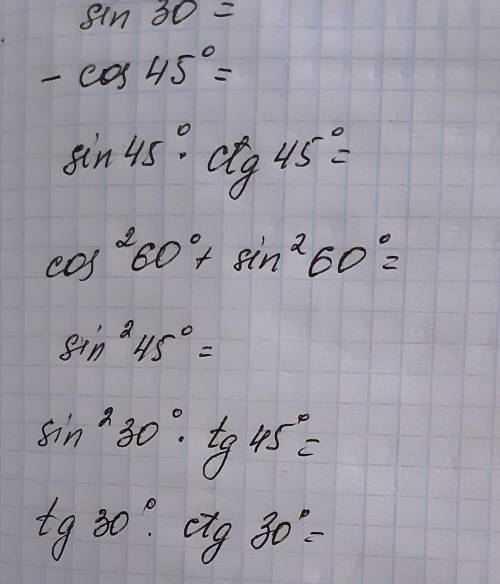 sin 30 =
- cos 45° =
sin 45° · ctg 45° =
cos²60° + sin²60° =
sin²45° =
sin²30° · tg 45° =
tg 30° · ctg 30° =